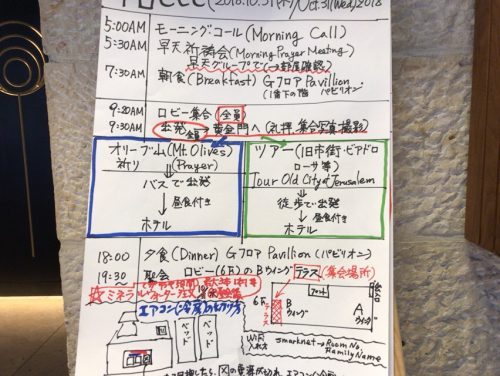 (2018.10.31(水)/Oct.31(Wed)2018
5:00AM モーニングコール(Morning Call)
5:30AM 早天祈祷会(Morning Prayer Meeting)
早天グループで
7:30AM 朝食(Breakfast) Gフロア Pavillion
1番下の階 パビリオン
9:20AM ロビー集合 全員
9:30AM 出発 全員 黄金門へ(礼拝,集合写真撮影)
オリーブ山(Mt.Olives)
祈り (Prayer)
↓
バスで出発
↓ 昼食付き
ホテル
ツアー(旧市街・ビアドロ
ローサ等)
Tour Old City of Jerusalem
↓
徒歩で出発
↓ 昼食付き
ホテル
18:00 夕食(Dinner) Gフロア Pavillion (パビリオン)
19:30~ 聖会 ロビー(6F)のBウイング テラス (集会場所)
ミネラルウォーター注文
エアコン(冷房)の
ベッド
ベッド
フロント
6F
テラス
B
ウイング
A
ウイング
WiFi
入れ方
Smarknet→Room No.
Family Name